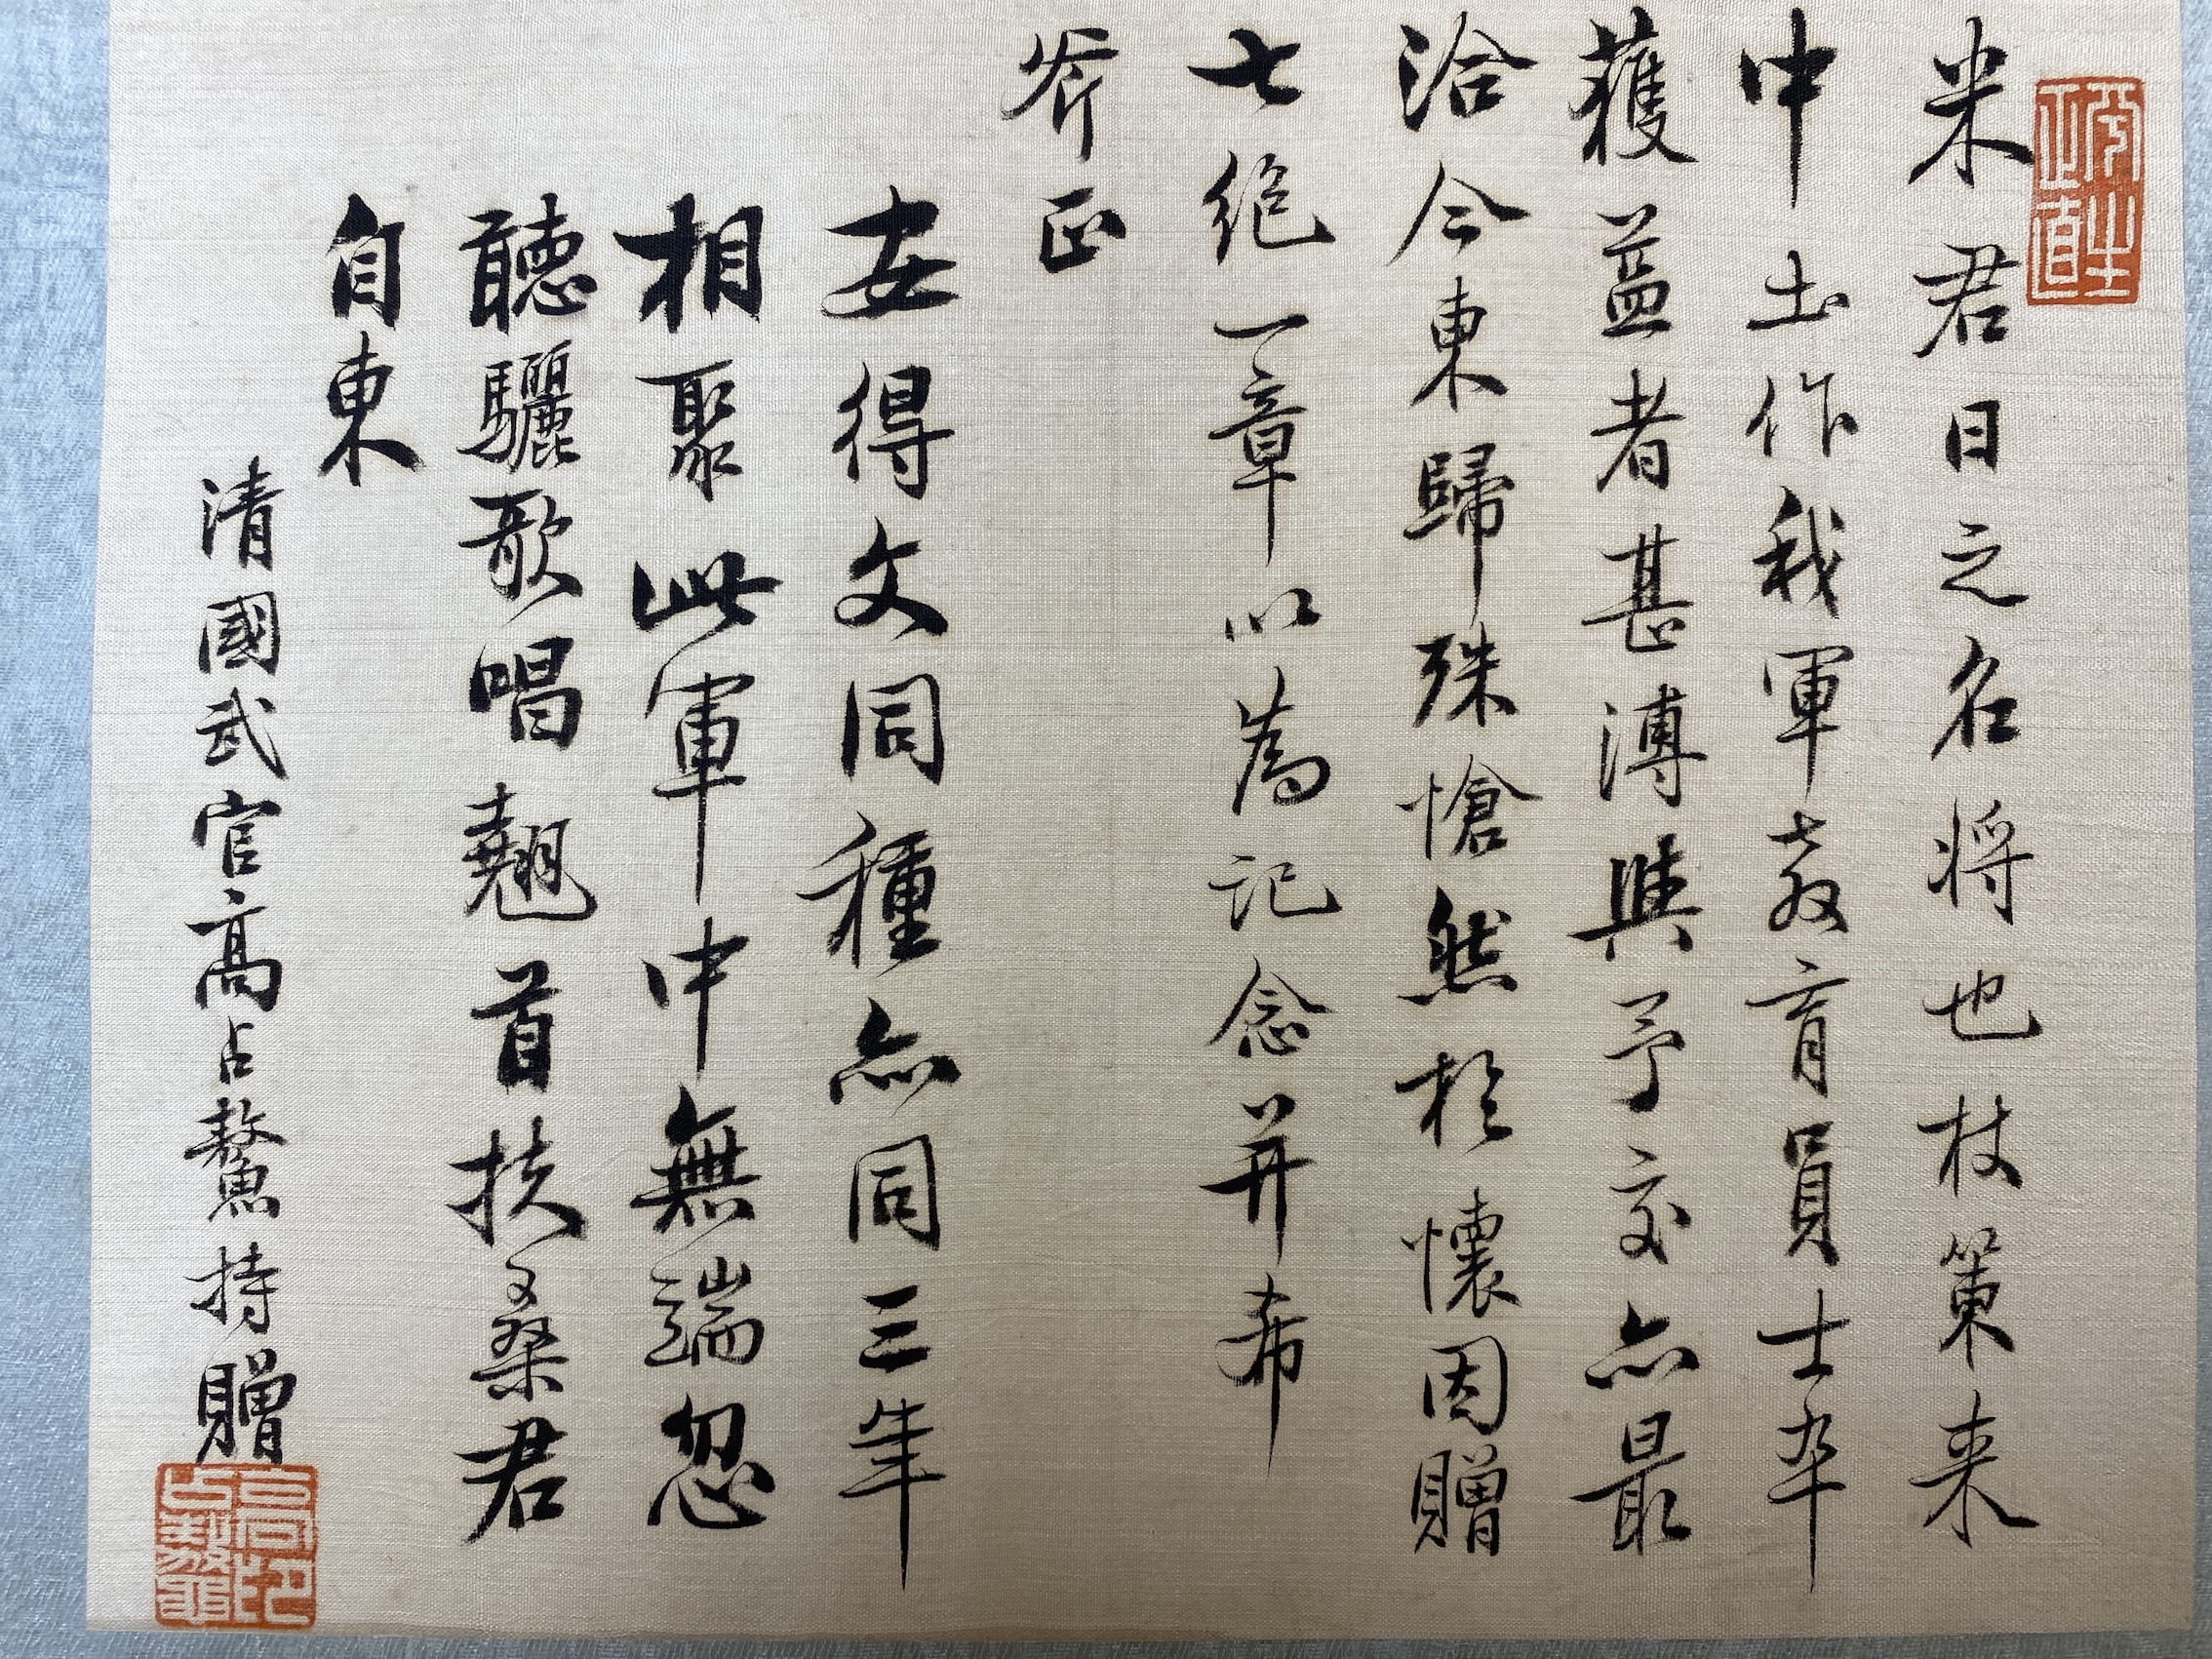 米君日之名将也杖策来
中土作我軍教育員士卒
獲益者甚溥與予交亦最
洽今東歸殊愴然於懷因贈
七絶一章以為記念并希
斧正
安得文同種亦同三年
相聚此軍中無端忽
聽驪歌唱翹首扶桑君
自東
清國武官高占鰲持贈
高印占鰲